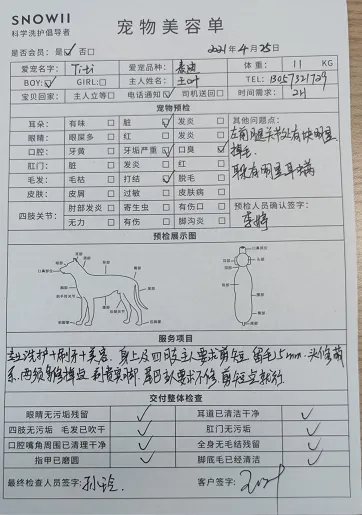 SNOWII
科学洗护倡导者
宠物美容单
是否会员：是☑ 否□
2021年4月25日
爱宠名字：Titi 爱宠品种：泰迪 体重：11 KG
BOY:☑ GIRL:□ 主人姓名：王 TEL: 13057321729
宝贝回家： 主人立等□ 电话通知☑ 司机送回□ 时间需求：2H
宠物预检
耳朵： 有味□ 脏☑ 发炎□
眼睛： 眼屎多□ 红□ 发炎□
口腔： 牙黄□ 牙垢严重☑ 口臭☑
肛门： 发炎□ 脏□ 红□
毛发： 毛枯□ 打结☑ 脱毛□
皮肤： 皮屑□ 过敏□ 皮肤病□
四肢关节： 肘部发炎□ 寄生虫□ 有伤口□
无力□ 有伤□ 脚沟炎□
其他问题点：
左前腿关节处有块明显
掉毛
耳朵有明显耳螨
预检人员确认签字：
李婷
预检展示图
服务项目
洗护+刷牙+美容，身上及四肢主人要求剪短，留毛5mm，头修萌
系，尾巴主人要求不修，剪短点就行
交付整体检查
眼睛无污垢残留 ✓ 耳道已清洁干净 ✓
四肢无污垢 毛发已吹干 ✓ 肛门无污垢 ✓
口腔嘴角周围已清理干净 ✓ 全身无毛结残留 ✓
指甲已磨圆 ✓ 脚底毛已经清洁 ✓
最终检查人员签字：孙玲 客户签字：